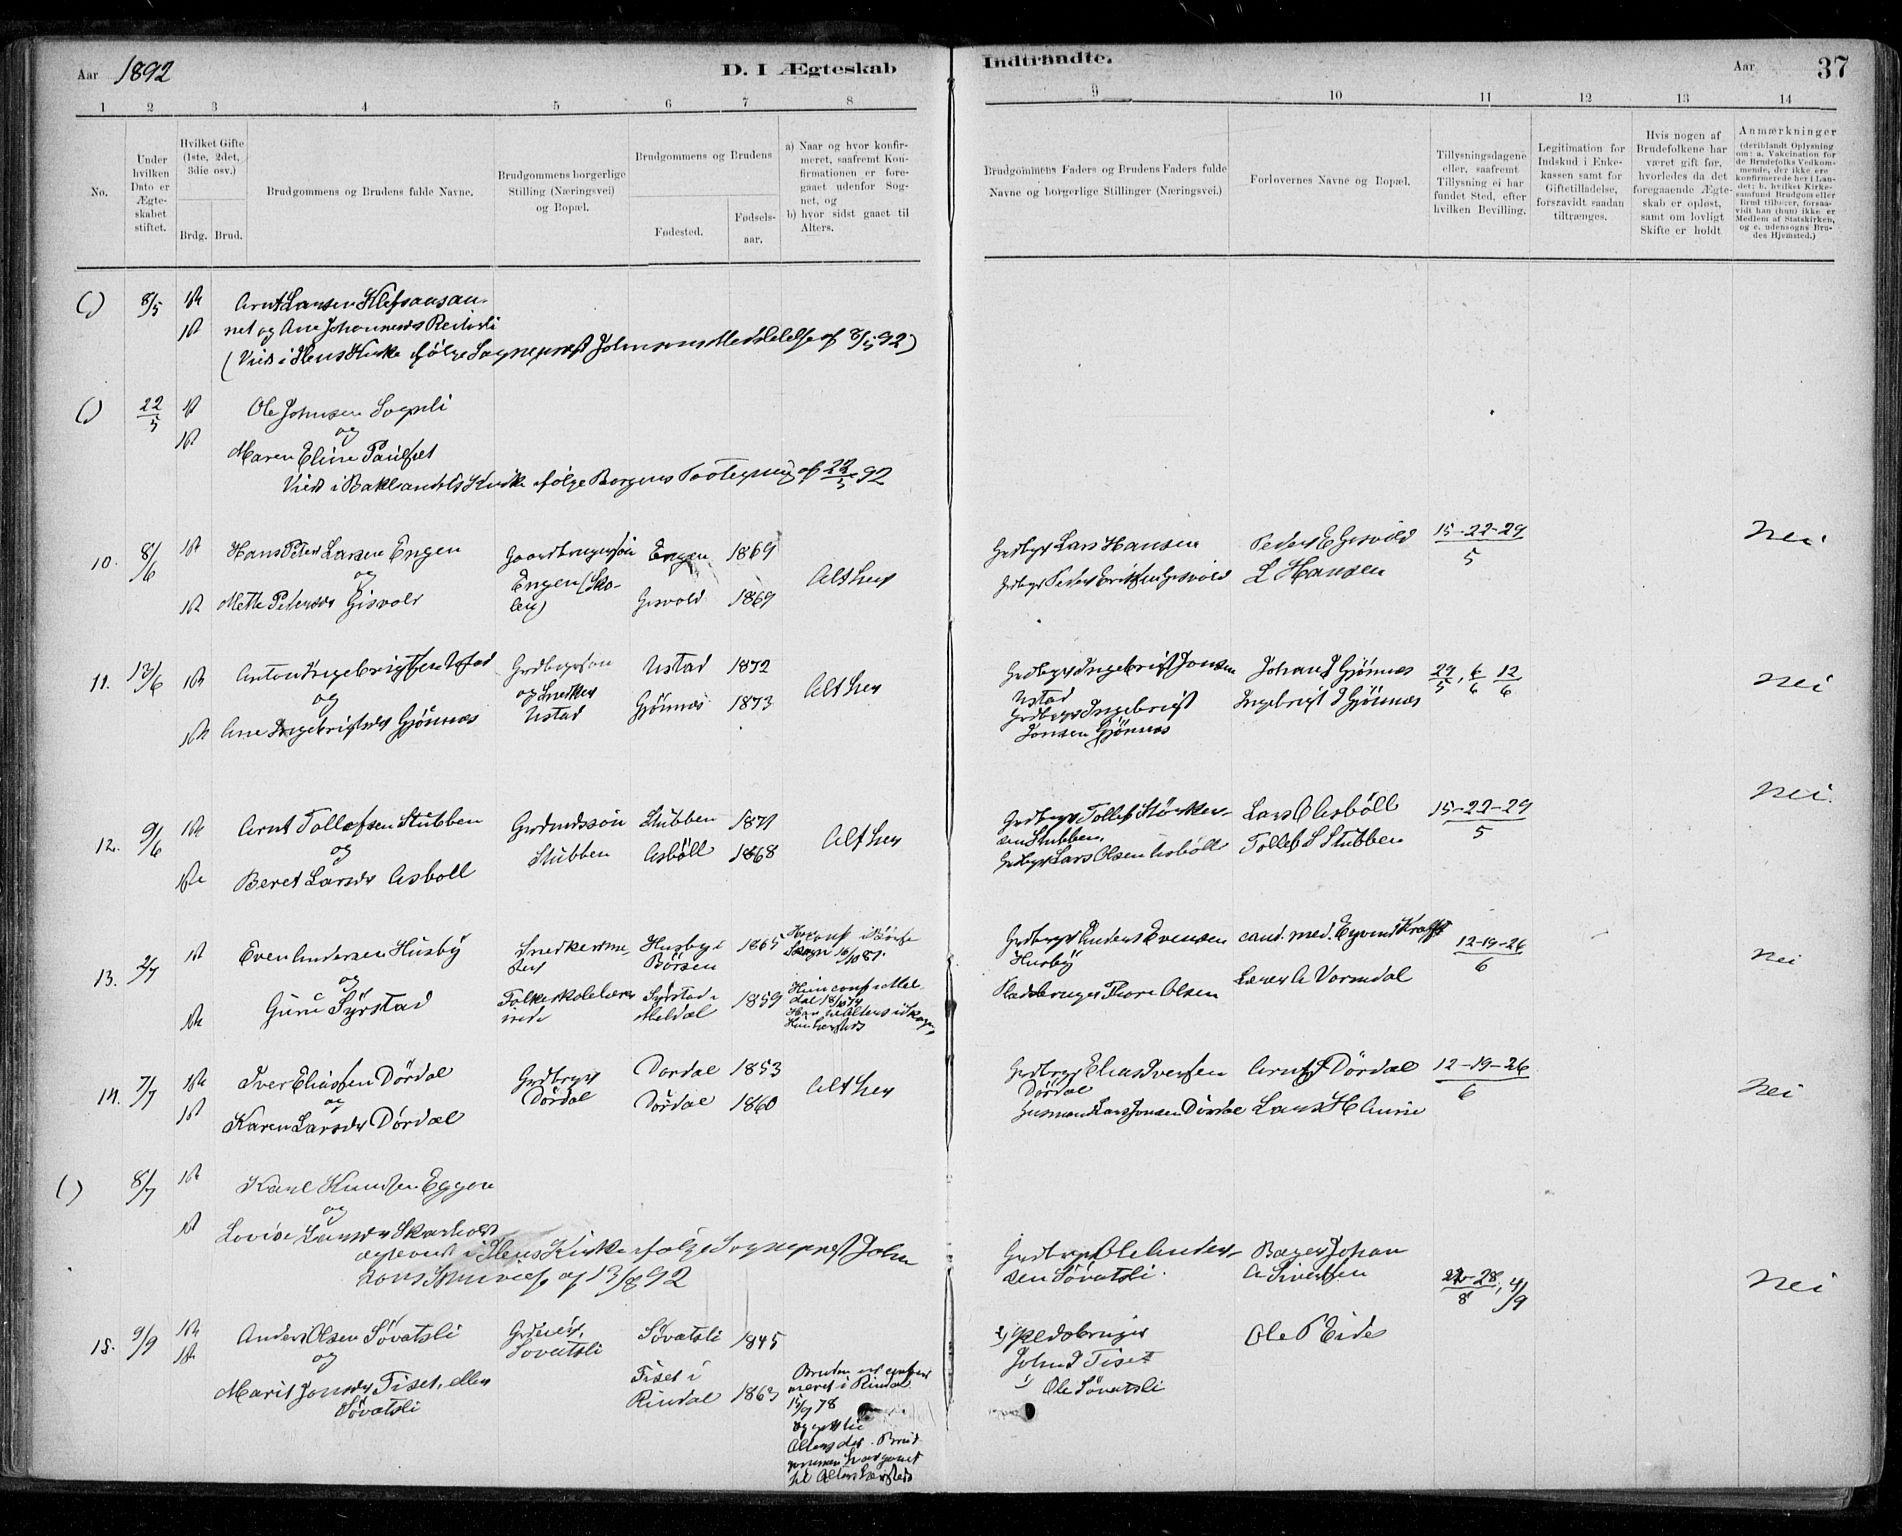 Aar 1892
D. I Ægteskab
Indtraadte.
Aar
37
1 2 3 4 5 6 7 8 9 10 11 12 13 14
No.
Under
hvilken
Dato er
Ægte-
skabet
stiftet.
Hvilket Gifte
(1ste, 2det,
3die osv.)
Brdg. Brud.
Brudgommens og Brudens fulde Navne.
Brudgommens borgerlige
Stilling (Næringsvei)
og Bopæl.
Brudgommens og Brudens
Fødested.
Fødsels-
aar.
a) Naar og hvor konfir-
meret, saafremt Kon-
firmationen er fore-
gaaet udenfor Sog-
net, og
b) hvor sidst gaaet til
Alters.
Brudgommens Faders og Brudens Faders fulde
Navne og borgerlige Stillinger (Næringsvei.)
Forlovernes Navne og Bopæl.
Tillysningsdagene
eller, saafremt
Tillysning ei har
fundet Sted, efter
hvilken Bevilling.
Legitimation for
Indskud i Enke-
kassen samt for
Giftetilladelse,
forsaavidt saadan
tiltrænges.
Hvis nogen af
Brudefolkene har
været gift før,
hvorledes da det
foregaaende Ægte-
skab er opløst,
samt om lovligt
Skifte er holdt
Anmærkninger
(deriblandt Oplysning
om: a. Vakcination for
de Brudefolks Vedkom-
mende, der ikke ere
konfirmerede her i Lan-
det; b. hvilket Kirke-
samfund Brudgom eller
Brud tilhører, forsaa-
vidt han (hun) ikke er
Medlem af Statskirken,
og c. udensogns Bru-
des Hjemsted.)
( ) 8/5 1st Arnt Larsen
1st net og Ane Johannesdr
(Viet i Ilens Kirke ifølge Sogneprest Johnsons Meddelelse af 8/5 92)
( ) 22/5 1st Ole Johnsen Sognli
og
1st Maren Eline
Viet i Baklandets Kirke ifølge af 22/5 92
10. 8/6 1st Hans Peter Larsen Engen
og
1st Mette Pedersdr Gisvold
Gaardbrugersøn
Engen (Sko-
leg)
Engen 1869
Gisvold 1869
Alt her
Grdbgr Lars Hansen
Grdbgr Peder Gisvold
Peder E Gisvold
L Hansen
15-22-29
5
Nei
11. 13/6 1st Anton Ingebrigtsen Ustad
og
1st Ane Ingebrigtsdr Gjönnæs
Grdbgrsøn
og Snedker
Ustad
Ustad 1872
Gjönnæs 1873
Alt her
Grdbgr Ingebrigt Jonsen
Ustad
Grdbgr Ingebrigt
Jonsen Gjönnæs
Johan J Gjönnæs
Ingebrigt J Gjönnæs
29/5, 6/6 12/6
Nei
12. 9/6 1st Arnt Tollefsen Stubben
og
1st Beret Larsdr Asböll
Grdmdssön
Stubben
Stubben 1871
Asböll 1868
Alt her
Grdbgr Tollef Störker-
sen Stubben,
Grdbgr Lars Olsen Asböll
Lars O Asböll
Tollef S Stubben
15-22-29
5
Nei.
13. 2/7 1st Even Andersen Husby
og
1st Guru Syrstad
Snedkerme
ster
Folkeskolelærer
inde
Husby i
Börsen 1865
Syrstad i
Meldal 1859
Han conf i Börse
Skogn 16/10 81.
Hun conf i Mel-
dal
Grdbgr Anders Evensen
Husby
Pladsbruger Thore Olsen
cand. med. Eyvind Krafft
Lærer A Vormdal
12-19-26
6
Nei
14. 7/7 1st Iver Eliassen Dördal
og
1st Karen Larsdr Dördal
Grdbrgr
Dördal
Dördal 1853
Dördal 1860
Alt her
Grdbrgr Elias Iversen
Dördal
Husmand Lars Jonsen Dördal
Arnt J Dördal
Lars H Aune
12-19-26
6
Nei
( ) 8/7 1st Karl Knudsen Eggen
og
1st Lovise Larsdr
ægteviet i Ilens Kirke ifølge Sogneprest John
sons af 13/8 92
15. 9/9 1st Anders Olsen Sövatsli
og
1st Marit Jonsdr Tiset, eller
Sövatsli
Grdeier,
Sovatsli
Sövatsli 1845
Tiset i
Rindal 1863
Bruden er confir
meret i Rindal
15/9 78
Alters der. Brud
gommen har gaaet
til Alters
Grdbrgr Ole Ander-
sen Sövatsli.
2) Pladsbruger
John J Tiset
1) Ole Sövatsli
Bager Johan
A Sivertsen
Ole P Eide
21-28/8, 4/9
Nei